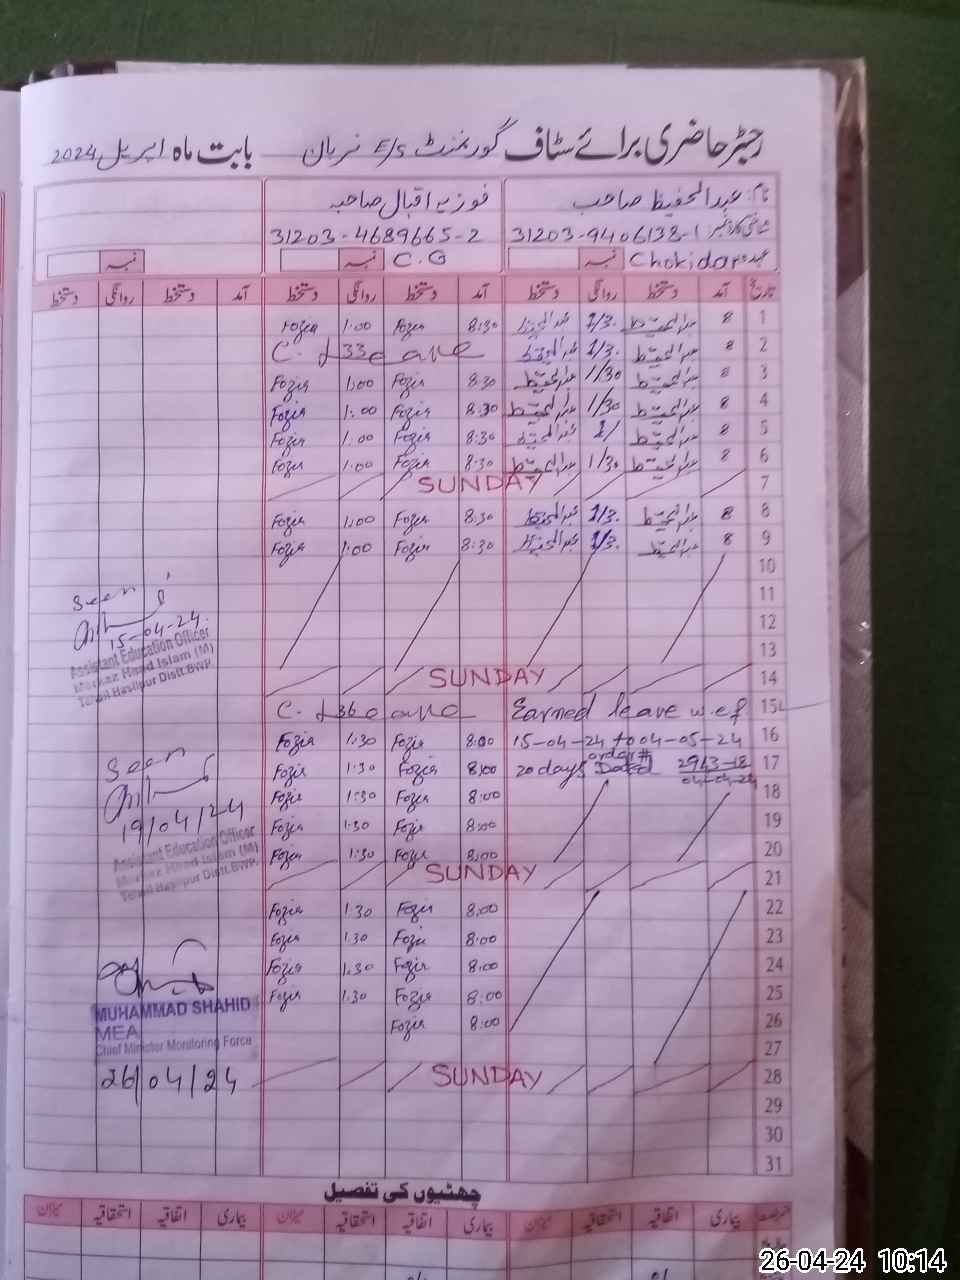 رجسٹر حاضری برائے سٹاف گورنمنٹ E/S نربان بابت ماہ اپریل 2024
نام: عبدالحفیظ صاحب فوزیہ اقبال صاحبہ
شناختی کارڈ نمبر: 31203-9406138-1 31203-4689665-2
عہدہ Chokidar C.G
تاریخ آمد دستخط روانگی دستخط آمد دستخط روانگی دستخط آمد دستخط روانگی دستخط
1 8 1/3. 8:30 Fozia 1:00 Fozia
2 8 1/3. C. Leave
3 8 1/30 8:30 Fozia 1:00 Fozia
4 8 1/30 8:30 Fozia 1:00 Fozia
5 8 1/ 8:30 Fozia 1:00 Fozia
6 8 1/30 8:30 Fozia 1:00 Fozia
7 SUNDAY
8 8 1/3. 8:30 Fozia 1:00 Fozia
9 8 1/3. 8:30 Fozia 1:00 Fozia
10
11
12
13
14 SUNDAY
15 Earned leave w.e.f C. Leave
16 15-04-24 to 04-05-24 8:00 Fozia 1:30 Fozia
17 20 days order # Dated 2963-18 04-04-24 8:00 Fozia 1:30 Fozia
18 8:00 Fozia 1:30 Fozia
19 8:00 Fozia 1:30 Fozia
20 8:00 Fozia 1:30 Fozia
21 SUNDAY
22 8:00 Fozia 1:30 Fozia
23 8:00 Fozia 1:30 Fozia
24 8:00 Fozia 1:30 Fozia
25 8:00 Fozia 1:30 Fozia
26 8:00 Fozia
27
28 SUNDAY
29
30
31
Seen
15-04-24
Assistant Education Officer
Markaz Head Islam (M)
Tehsil Hasilpur Distt.BWP.
Seen
19/04/24
Assistant Education Officer
Markaz Head Islam (M)
Tehsil Hasilpur Distt.BWP.
MUHAMMAD SHAHID
MEA
Chief Minister Monitoring Force
26/04/24
چھٹیوں کی تفصیل
بیماری اتفاقیہ استحقاقیہ میزان بیماری اتفاقیہ استحقاقیہ میزان بیماری اتفاقیہ استحقاقیہ میزان
26-04-24 10:14